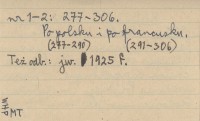 nr 1-2: 277-306.
Po polsku i po francusku.
(277-290) (291-306)
Też odb.: jw. 1925 r.
WHP
MT